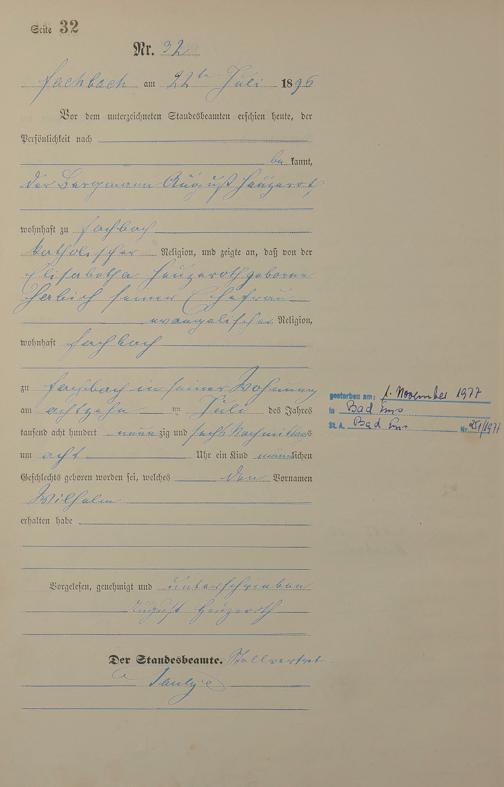 Seite 32
Nr. 32
Fachbach am 22ten Juli 1896
Vor dem unterzeichneten Standesbeamten erschien heute, der
Persönlichkeit nach
be kannt,
der Bergmann August Heuzeroth,
wohnhaft zu Fachbach
katholischer Religion, und zeigte an, daß von der
Elisabetha Heuzeroth geborene
Herbich seiner Ehefrau
evangelischer Religion,
wohnhaft Fachbach
zu Fachbach in seiner Wohnung
am achtzehn ten Juli des Jahres
tausend acht hundert neun zig und sechs Nachmittags
um acht Uhr ein Kind männlichen
Geschlechts geboren worden sei, welches den Vornamen
Wilhelm
erhalten habe
Vorgelesen, genehmigt und unterschrieben
August Heuzeroth
Der Standesbeamte. Stellvertret.
gestorben am: 1. November 1977
in Bad Ems
St. A. Bad Ems Nr. 251/1977